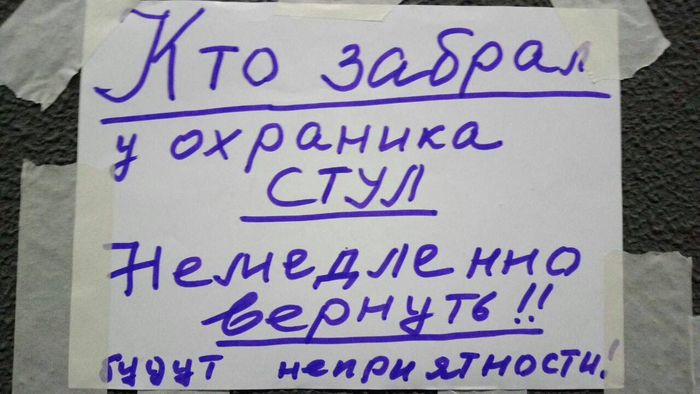 Кто забрал
у охраника
СТУЛ
Немедленно
вернуть!!
будут неприятности!